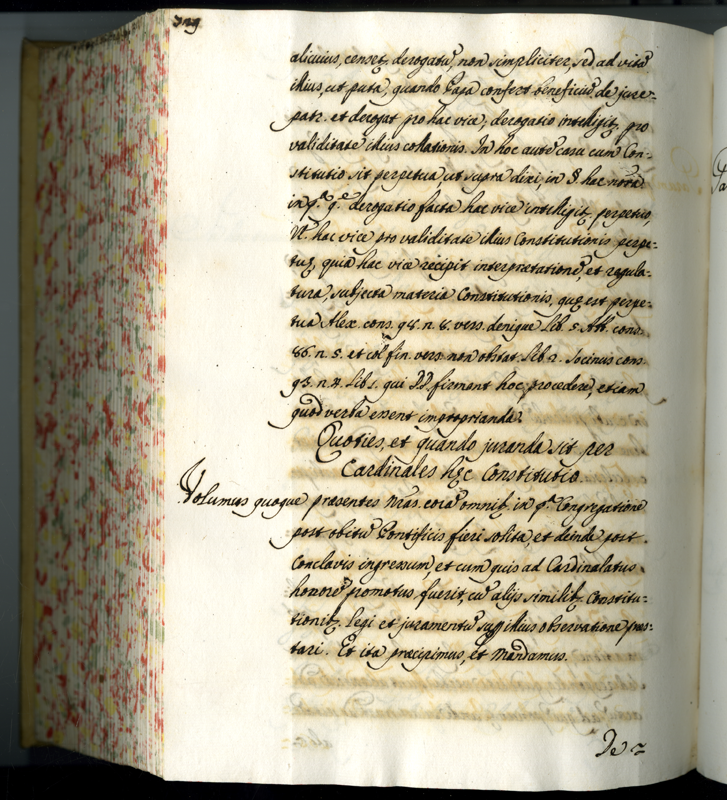 329
alicuius, censet₃ derogatũ, non simpliciter, sed ad vitã
illius, ut puta, quando Papa confert beneficiũ de jure=
patr. et derogat pro hac vice, derogatio intelligit₃ pro
validitate illius collationis. In hoc autẽ casu cum Con=
stitutio sit perpetua, ut supra dixi, in §. hac nr̃a
in q.ᵃ q.ᵉ derogatio facta hac vice intelligit₃ perpetio,
N. hac vice pro validitate illius Constitutionis perpe=
tuę, quia hac vice recipit interpretationẽ, et regula=
tura, subjecta materia Constitutionis, quę est perpe=
tua Alex. cons. 98. n. 8. vers. denique lib. 5. Alb. cons.
86. n. 5. et col. fin. vers. non obstat lib. 2. Socinus cons.
93. n. 4. lib. 1. qui DD. firment hoc procedere, etiam
quod verba essent improprianda.
Quoties, et quando juranda sit per
Cardinales hęc Constitutio.
Volumus quoque præsentes nr̃as, eorũ omnib₃ in p.ᵃ Congregatione
post obitũ Pontificis fieri solita, et deinde post
Conclavis ingressum, et cum quis ad Cardinalatus
honorẽ promotus fuerit, cũ alijs similib₃ Constitu=
tionib₃ legi et juramentũ sup. illius observatione præs=
tari. Et ita præcipimus, et Mandamus.
De =